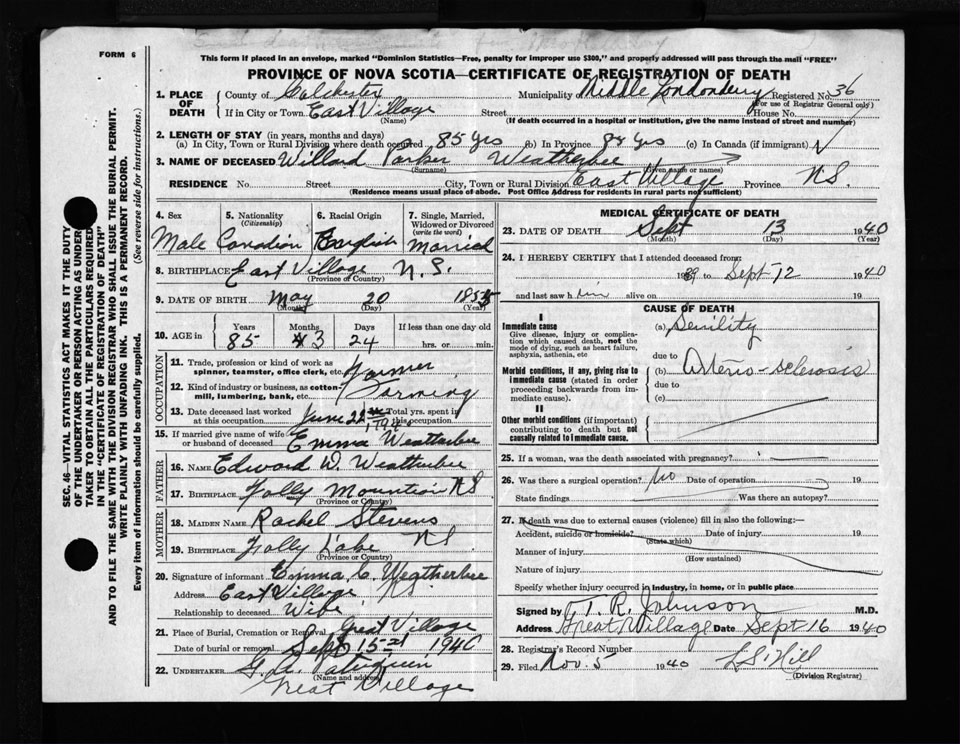 FORM 6
This form if placed in an envelope, marked "Dominion Statistics—Free, penalty for improper use $300," and properly addressed will pass through the mail "FREE"
PROVINCE OF NOVA SCOTIA—CERTIFICATE OF REGISTRATION OF DEATH
SEC. 46—VITAL STATISTICS ACT MAKES IT THE DUTY
OF THE UNDERTAKER OR PERSON ACTING AS UNDER
TAKER TO OBTAIN ALL THE PARTICULARS REQUIRED
IN THE "CERTIFICATE OF REGISTRATION OF DEATH"
AND TO FILE THE SAME WITH THE DIVISION REGISTRAR WHO SHALL ISSUE THE BURIAL PERMIT.
WRITE PLAINLY WITH UNFADING INK. THIS IS A PERMANENT RECORD.
Every item of information should be carefully supplied. (See reverse side for instructions.)
1. PLACE OF DEATH County of Colchester Municipality of Middle Londonderry Registered No. 36
(For use of Registrar General only)
If in City or Town East Village Street House No.
(Name) (If death occurred in a hospital or institution, give the name instead of street and number)
2. LENGTH OF STAY (in years, months and days)
(a) In City, Town or Rural Division where death occurred 85 yrs (b) In Province 84 yrs (c) In Canada (if immigrant)
3. NAME OF DECEASED Willard Parker Weatherbee
(Surname) (Given name or names)
RESIDENCE No. Street City, Town or Rural Division East Village Province N.S.
(Residence means usual place of abode. Post Office Address for residents in rural parts not sufficient)
4. Sex Male
5. Nationality (Citizenship) Canadian
6. Racial Origin English
7. Single, Married, Widowed or Divorced (write the word) Married
8. BIRTHPLACE East Village N.S.
(Province or Country)
9. DATE OF BIRTH May 20 1855
(Month) (Day) (Year)
10. AGE in Years Months Days If less than one day old
85 3 24 hrs. or min.
OCCUPATION
11. Trade, profession or kind of work as spinner, teamster, office clerk, etc. Farmer
12. Kind of industry or business, as cotton-mill, lumbering, bank, etc. Farming
13. Date deceased last worked at this occupation June 22 14. Total yrs. spent in this occupation
15. If married give name of wife or husband of deceased Emma Weatherbee
FATHER
16. NAME Edward W. Weatherbee
17. BIRTHPLACE Folly Mountain N.S.
(Province or Country)
MOTHER
18. MAIDEN NAME Rachel Stevens
19. BIRTHPLACE Folly Lake N.S.
(Province or Country)
20. Signature of informant Emma C. Weatherbee
Address East Village N.S.
Relationship to deceased Wife
21. Place of Burial, Cremation or Removal Great Village
Date of burial or removal Sept 15 1940
22. UNDERTAKER G. A.
(Name and address)
Great Village
MEDICAL CERTIFICATE OF DEATH
23. DATE OF DEATH Sept 13 1940
(Month) (Day) (Year)
24. I HEREBY CERTIFY that I attended deceased from:
1939 to Sept 12 1940
and last saw him alive on 19
CAUSE OF DEATH
I
Immediate cause
Give disease, injury or complication which caused death, not the mode of dying, such as heart failure, asphyxia, asthenia, etc
(a) Senility
due to
Morbid conditions, if any, giving rise to immediate cause (stated in order proceeding backwards from immediate cause).
(b) Arterio-sclerosis
due to
(c)
II
Other morbid conditions (if important) contributing to death but not causally related to immediate cause.
25. If a woman, was the death associated with pregnancy?
26. Was there a surgical operation? No Date of operation 19
State findings Was there an autopsy?
27. If death was due to external causes (violence) fill in also the following:—
Accident, suicide or homicide? Date of injury 19
(State which)
Manner of injury
(How sustained)
Nature of injury
Specify whether injury occurred in industry, in home, or in public place
Signed by T. R. Johnson M.D.
Address Great Village Date Sept 16 1940
28. Registrar's Record Number
29. Filed Nov. 5 1940 L. S. Hill
(Division Registrar)